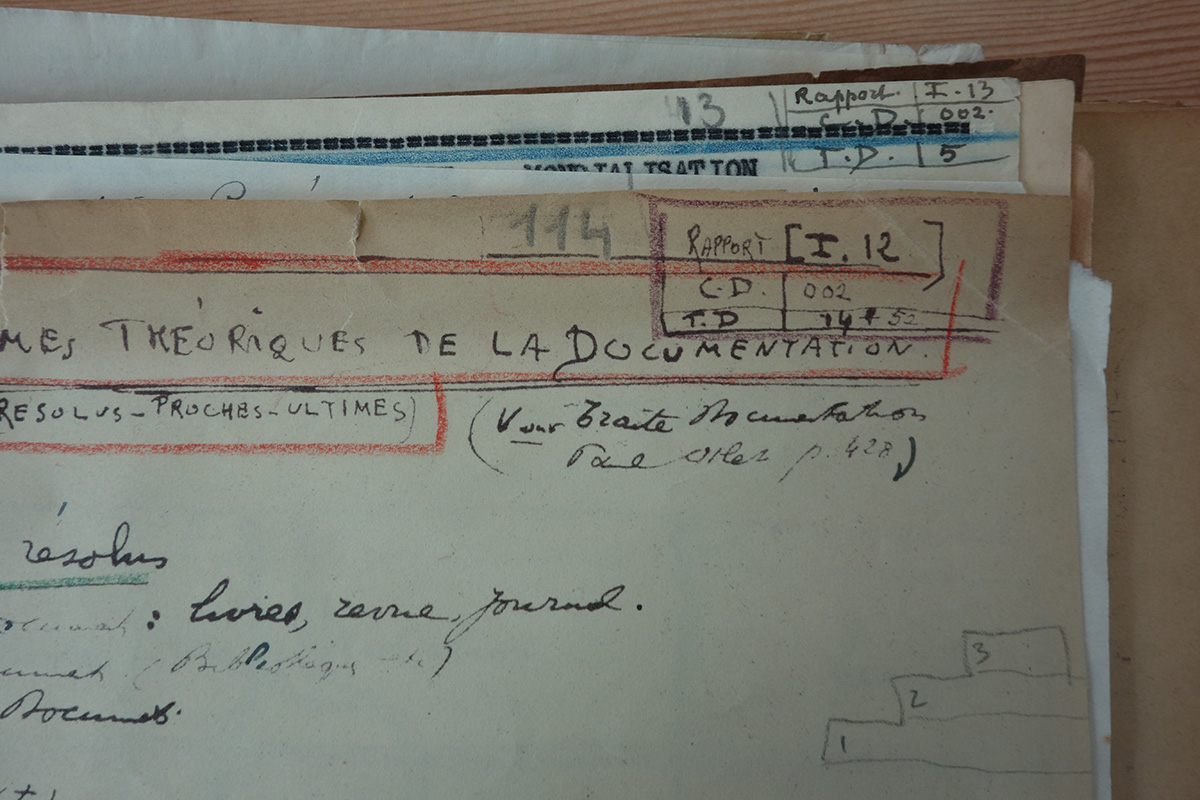 13
Rapport. I-13
C.D. 002.
T.D. 5
MONDIALISATION
114
RAPPORT [I. 12]
C.D. 002
T.D
MES THÉORIQUES DE LA DOCUMENTATION.
RESOLUS-PROCHES-ULTIMES)
(Voir Traité Documentation
Paul Otlet p. 428)
résolus
: livres, revue, journal.
(Bibliothèque etc)
3
2
1